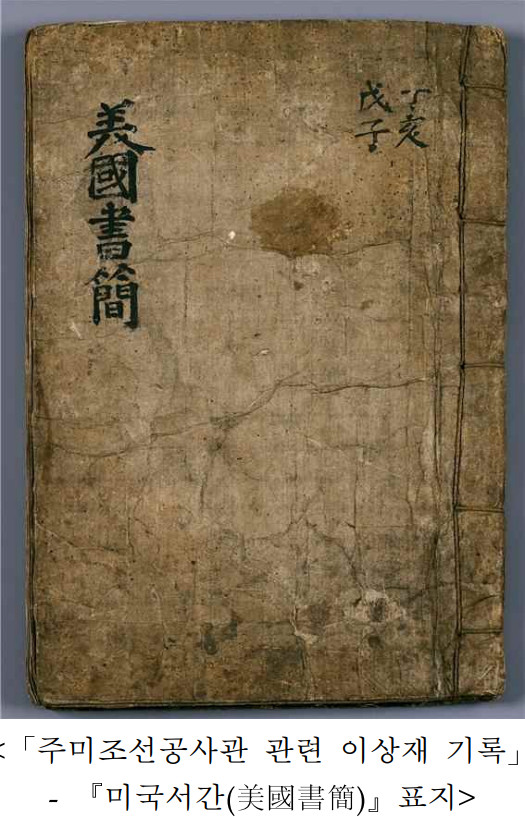 丁亥
戊子
美國書簡
<「주미조선공사관 관련 이상재 기록」
- 『미국서간(美國書簡)』표지>